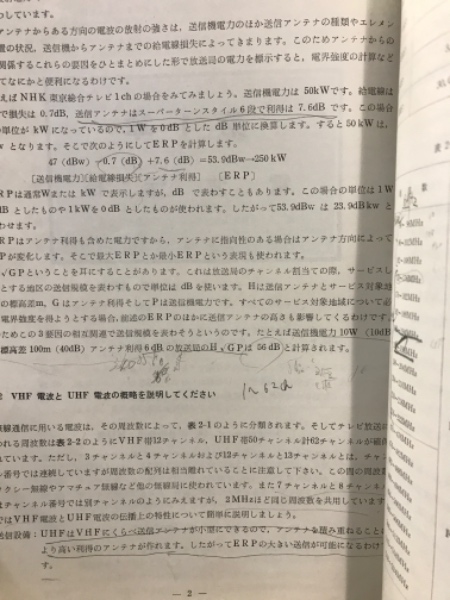 わしています。
アンテナからある方向の電波の放射の強さは、送信機電力のほか送信アンテナの種類やエレメン
置の状況、送信機からアンテナまでの給電線損失によってきまります。このためアンテナからの
関係するこれらの要因をひとまとめにした形で放送局の電力を標示すると、電界強度の計算など
てなにかと便利になるわけです。
えばNHK東京総合テレビ1chの場合をみてみましょう。送信機電力は50kWです。給電線は
で損失は0.7dB、送信アンテナはスーパーターンスタイル6段で利得は7.6dBです。この場合
の単位がkWになっているので、1Wを0dBとしたdB単位に換算します。すると50kWは、
wとなります。そこで次のようにしてERPを計算します。
47(dBw)-0.7(dB)+7.6(dB)=53.9dBw→250kW
[送信機電力][給電線損失][アンテナ利得] [ERP]
RPは通常WまたはkWで表示しますが、dBで表わすこともあります。この場合の単位は1W
dBとしたものや1kWを0dBとしたものが使われます。したがって53.9dBwは23.9dBkwと
わせます。
RPはアンテナ利得も含めた電力ですから、アンテナに指向性のある場合はアンテナ方向によって
Pが変化します。そこで最大ERPとか最小ERPという表現も使われます。
√GPということを耳にすることがあります。これは放送局のチャンネル割当ての際、サービスし
とする地区の送信規模を表わすもので単位はdBを使います。Hは送信アンテナとサービス対象地
の標高差m、Gはアンテナ利得そしてPは送信機電力です。すべてのサービス対象地域について必
電界強度を得ようとする場合、前述のERPのほかに送信アンテナの高さも影響してくるわけです
のためこの3要因の相互関連で送信規模を表わそうというのです。たとえば送信機電力10W(10dB
標高差100m(40dB)アンテナ利得6dBの放送局のH√GPは56dBと計算されます。
2 VHF電波とUHF電波の概略を説明してください
無線通信に用いる電波は、その周波数によって、表2-1のように分類されます。そしてテレビ放送に
われる周波数は表2-2のようにVHF帯12チャンネル、UHF帯50チャンネル計62チャンネルが
れています。ただし、3チャンネルと4チャンネルおよび12チャンネルと13チャンネルとは、チャン
ル番号では連続していますが周波数の配列は相当離れていることに注意して下さい。この間の周波数
タクシー無線やアマチュア無線など他の無線局に使われています。また7チャンネルと8チャン
はチャンネル番号では別チャンネルのようにみえますが、2MHzほど同じ周波数を共用しています
ではVHF電波とUHF電波の伝播上の特性について簡単に説明しましょう。
送信設備:UHFはVHFにくらべ送信アンテナが小型にできるので、アンテナを積み重ねること
より高い利得のアンテナが作れます。したがってERPの大きい送信が可能になるわけ
す。
— 2 —